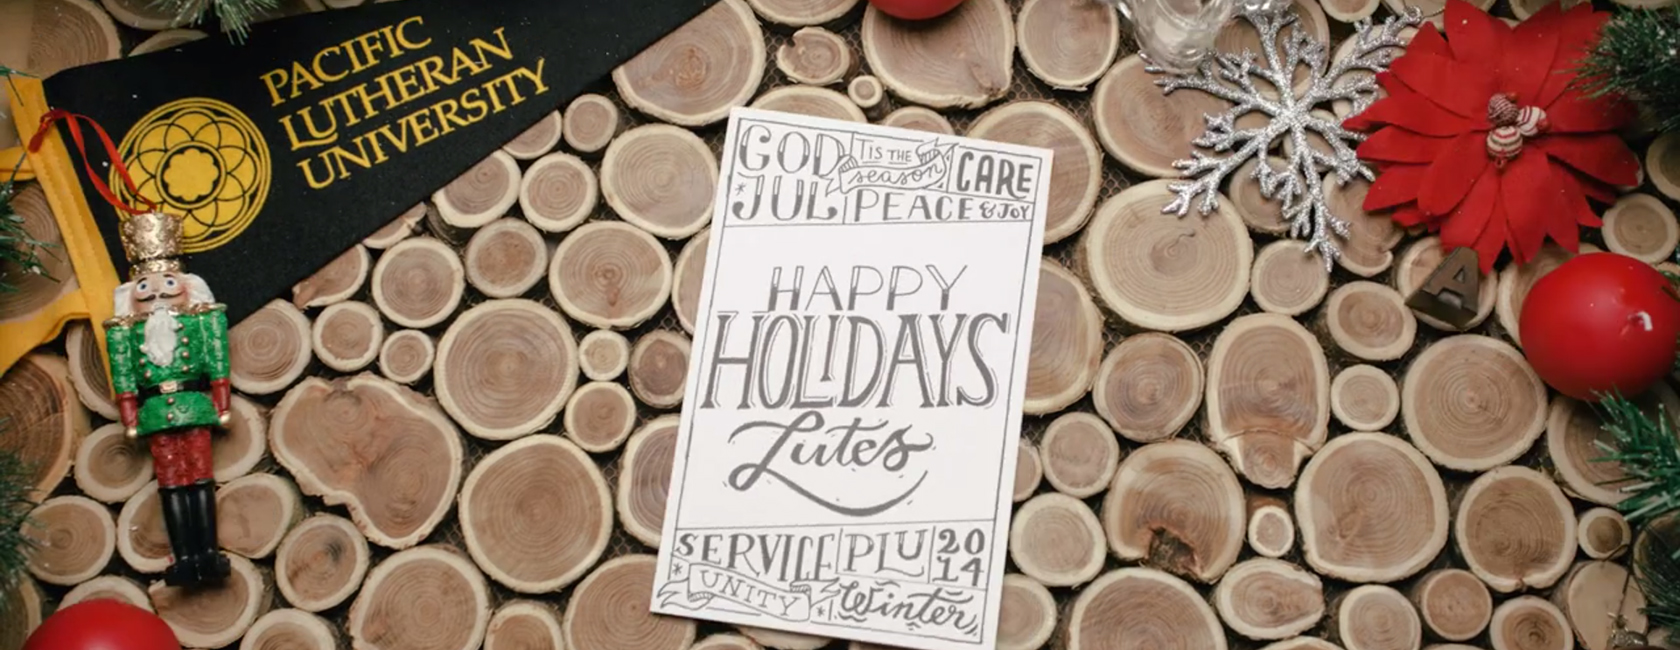 PACIFIC
LUTHERAN
UNIVERSITY
GOD
JUL
TIS THE
season
CARE
PEACE & JOY
HAPPY
HOLIDAYS
Lutes
SERVICE
UNITY
PLU
2014
Winter
A